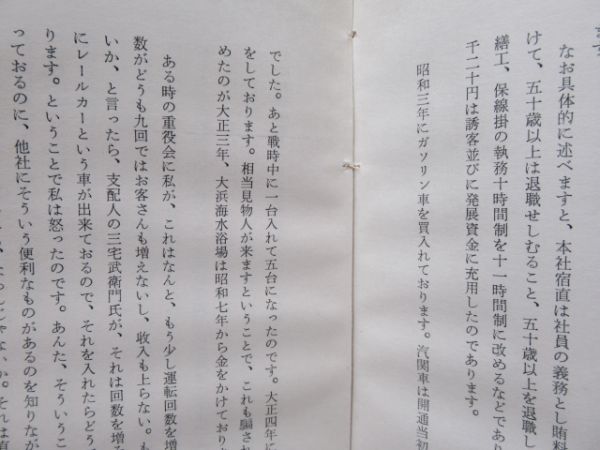 ます
なお具体的に述べますと、本社宿直は社員の義務とし賄料
けて、五十歳以上は退職せしむること、五十歳以上を退職し
繕工、保線掛の執務十時間制を十一時間制に改めるなどであり
千二十円は誘客並びに発展資金に充用したのであります。
昭和三年にガソリン車を買入れております。汽関車は開通当初
でした。あと戦時中に一台入れて五台になったのです。大正四年に
をしております。相当見物人が来ますということで、これも騙され
めたのが大正三年、大浜海水浴場は昭和七年から金をかけており
ある時の重役会に私が、これはなんと、もう少し運転回数を増
数がどうも九回ではお客さんも増えないし、収入も上らない。も
いか、と言ったら、支配人の三宅武衛門氏が、それは回数を増
にレールカーという車が出来ておるので、それを入れたらどう
ります。ということで私は怒ったのです。あんた、そういうこ
っておるのに、他社にそういう便利なものがあるのを知りなが
じゃないか。それは